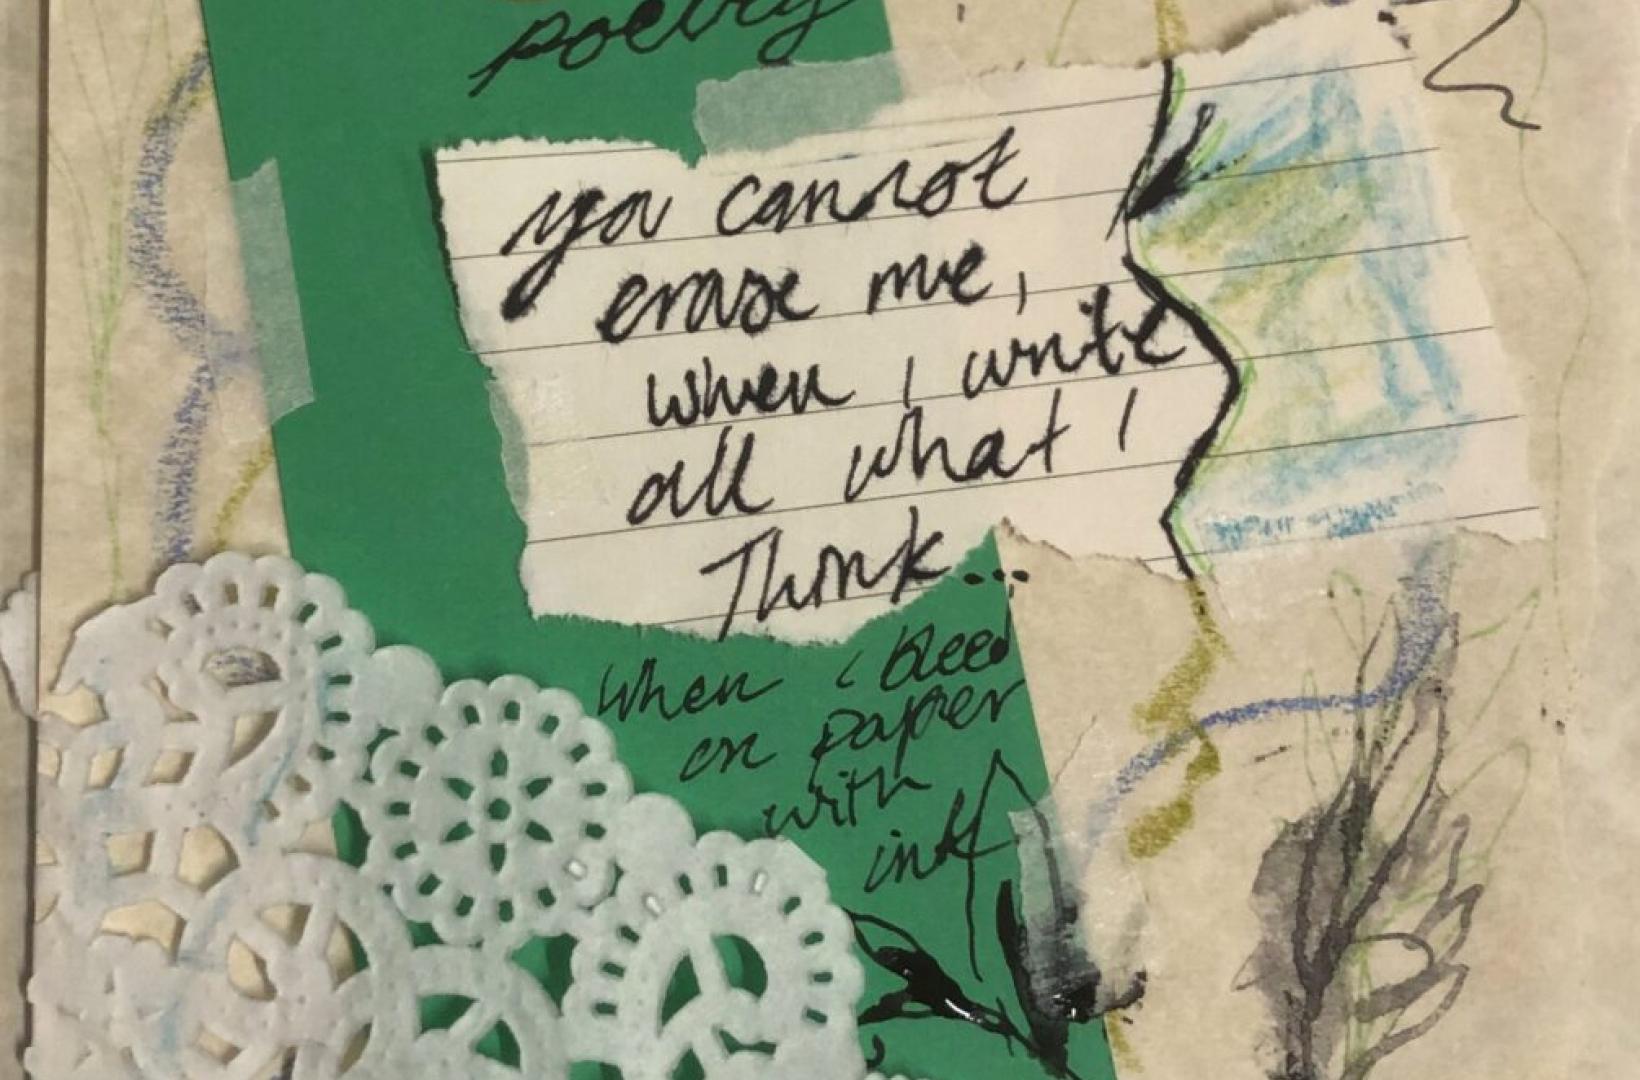 poetry
you cannot
erase me,
when i write
all what i
Think...
when i bleed
on paper
with
ink